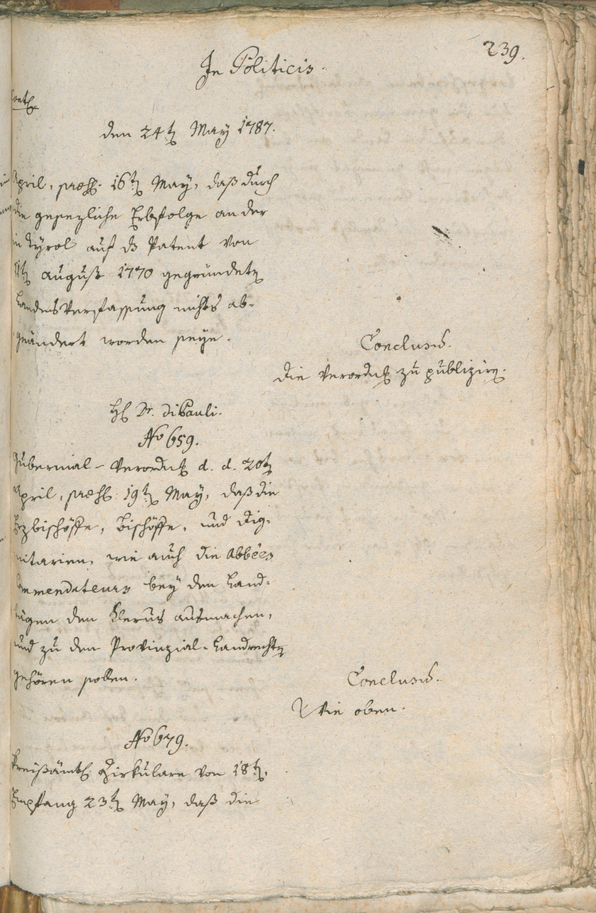 239.
In Politicis.
den 24t May 1787.
April, praes. 16t May, daß durch
die gesezliche Erbfolge an der
in Tyrol auf ds Patent von
August 1770 gegründete
Landesverfassung nichts ab-
geändert worden seye.
Conclusū.
Die Verordn zu publiziren.
H Dr. diPauli.
No 659.
Gubernial-Verordn d. d. 20t
April, praes. 19t May, daß die
Erzbischöffe, Bischöffe, und Dig-
nitarien, wie auch die Abbées
Commendateurs bey den Land-
tägen den Klerus ausmachen,
und zu den Provinzial-Landrechten
gehören sollen.
Conclusū.
Wie oben.
No 679.
Kreisämtl Zirkulare von 18t,
Empfang 23t May, daß die